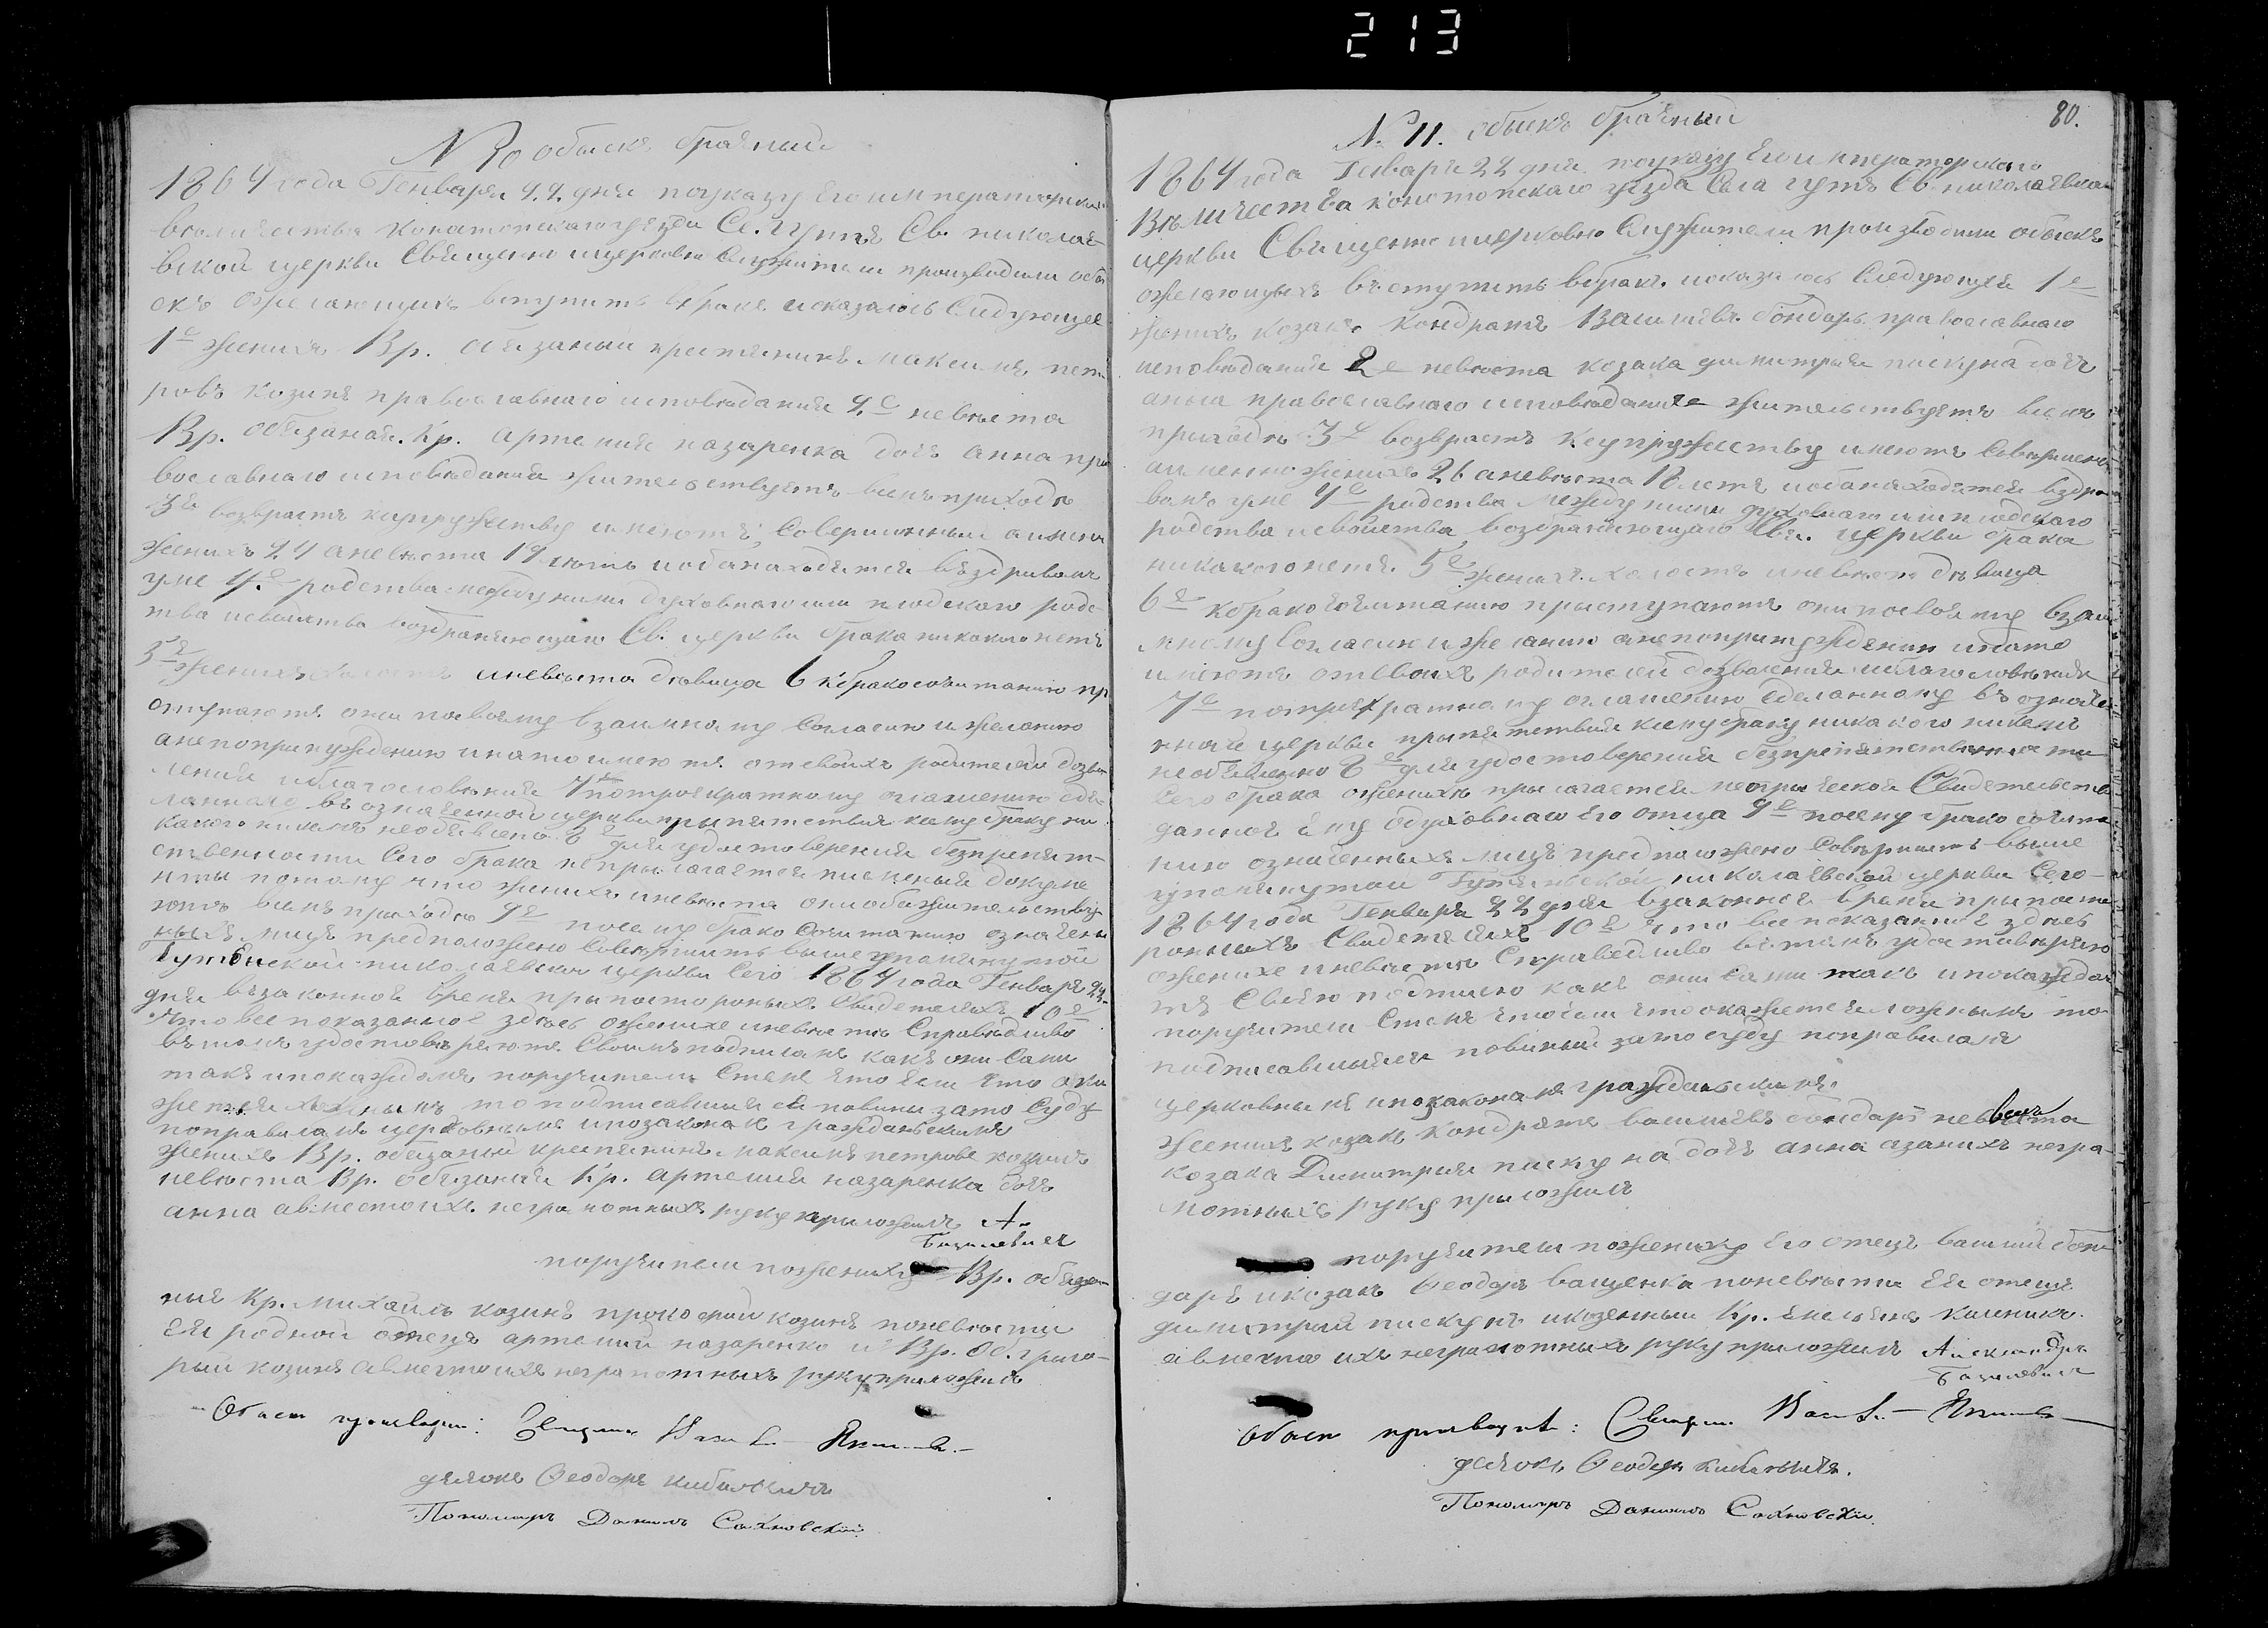 213
N 10 обыскъ брачный
1864 года Генваря 22 дня поуказу Его императорскаго
величества Конотопскаго уезда Се. Гутъ Св. николае-
вской церкви Священно ицерковно Служители производили обы
скъ ожелающихъ вступить вбракъ иоказалось Следующее
1е женихъ Вр. обязаный крестянинъ Максимъ пет
ровъ козинъ православнаго исповѣдания 2е невѣста
Вр. обязаной. Кр. артемия назаренка дочъ анна пра
вославнаго исповѣдания жительствуетъ въсемъ приходѣ
3е возврастъ ксупружеству имеютъ; Совершенный аименно
женихъ 24 аневѣста 19 лѣтъ иобанаходятся въздравомъ
уме 4е родства между ними духовнаго или плодскаго родс
тва исвойства возбраняющаго Св. церкви брака никакого нетъ
5е женихъ холостъ иневѣста дѣвица 6 кбракосочитанию пр
ступаютъ они посвоему взаимному Согласию ижеланию
анепопринуждению инатоимеютъ отсвоихъ родителей дозво
ления иблагословѣния 7е потроекратному оглашению сде
ланного въозначенной церкви прыпятствия ксему браку ни
какого никемъ необявлено. 8е для удостоверения безпрепят-
ственности Сего брака неприлагается писменый докуме
нты потому что женихъ иневѣста они обажительству
ютъ всемъ приходѣ 9е посему брако Сочитанию означены
ныхъ лицъ предположено Совершить вышеупомянутой
Гутѣнской николаевской церкви Сего 1864 года Генваря 22
дня възаконное время прыпосторонныхъ Свидетеляхъ 10е
Что все показанное здѣсь оженихе иневѣстѣ Справедливо
въ томъ удостовѣряютъ. Своимъ подписамъ какъ они Сами
такъ ипокаждомъ поручители Стемъ что Если что ока
жется ложнымъ то подписавшийся повины зато Суду
поправиламъ церковнымъ ипозаконамъ гражданскимъ
женихъ Вр. обязаный крестянинъ Максимъ петровъ козинъ
невѣста Вр. обязаная Кр. артемия назаренка дочъ
анна авместоихъ неграмотныхъ руку прыложилъ А.
Базилевичъ
поручители поженихѣ Вр. обязан
ный Кр. михаилъ козинъ прокофий козинъ поневѣсте
Ея родной отецъ артемий назаренко и Вр. Об. григо-
рый козинъ авместо ихъ неграмотныхъ руку приложилъ
Обыскъ производили: Священникъ
дьячокъ Феодоръ кибальчичъ
Пономарь Данилъ Сахновский
80.
N. 11. обыскъ брачный
1864 года Генваря 22 дня поуказу Его императорскаго
Величества конотопскаго уезда Села гутъ Св. николаевской
церкви Священно ицерковно Служители произъводили обыскъ
ожелающыхъ въступить вбракъ иоказалось Следующее 1е
женихъ козакъ Кондратъ Василиевъ бондаръ православнаго
исповѣдания 2е невѣста козака димитрия пискуна дочъ
анна православнаго исповѣдания жительствуетъ всемъ
приходѣ 3е возврастъ ксупружеству имеютъ Совершенный
аименно женихъ 26 аневѣста 18 летъ иобанаходятся въздра
вомъ уме 4е родства между ними духовнаго или плодскаго
родства исвойства возбраняющаго Св. церкви брака
никакогонетъ. 5е женихъ. Холостъ иневѣста дѣвица
6е кбракосочитанию прыступаютъ они посвоему взаи
мному Согласию ижеланию анепопринуждению инато
имеютъ отсвоихъ родителей дозволения иблагословѣния
7е потроекратному оглашению Сделанному въ означе
нной церкви прыпятствия ксему браку никакого никемъ
необявлено 8е для удостоверения безпрепятственности
Сего брака оженихѣ прылагается Свидетельство
данное ему одуховнаго Его отца 9е посему бракосочита
нию означенныхъ лицъ предположено Совершить выше
упомянутой Гутянской николаевской церкви Сего-
1864 года Генваря 22 дня взаконное время прыпосто
ронныхъ Свидетеляхъ 10е что все показанное здѣсь
ожениxе иневѣсте Справедливо вътомъ удостовѣряю
тъ Своею подписю какъ они Сами такъ ипокаждом
поручители Стемъ что Если что окажется ложнымъ то
подписавшыйся повиный зато суду поправиламъ
церковнымъ ипозаконамъ гражданскимъ.
женихъ козакъ Кондратъ василиевъ бондаръ невѣста
козака Димитрия пискуна дочъ анна азанихъ негра-
мотныхъ руку прыложилъ
поручители поженихѣ Его отецъ василий бон
даръ икозакъ Феодоръ ващенка поневѣсти Ея отецъ
димитрий пискунъ иказенный Кр. Емелянъ калникъ.
авместо ихъ неграмотныхъ руку прыложилъ Александръ
Базилевичъ
Обыскъ производили: Священникъ
дьячокъ Феодоръ кибальчичъ.
Пономарь Данилъ Сахновский.